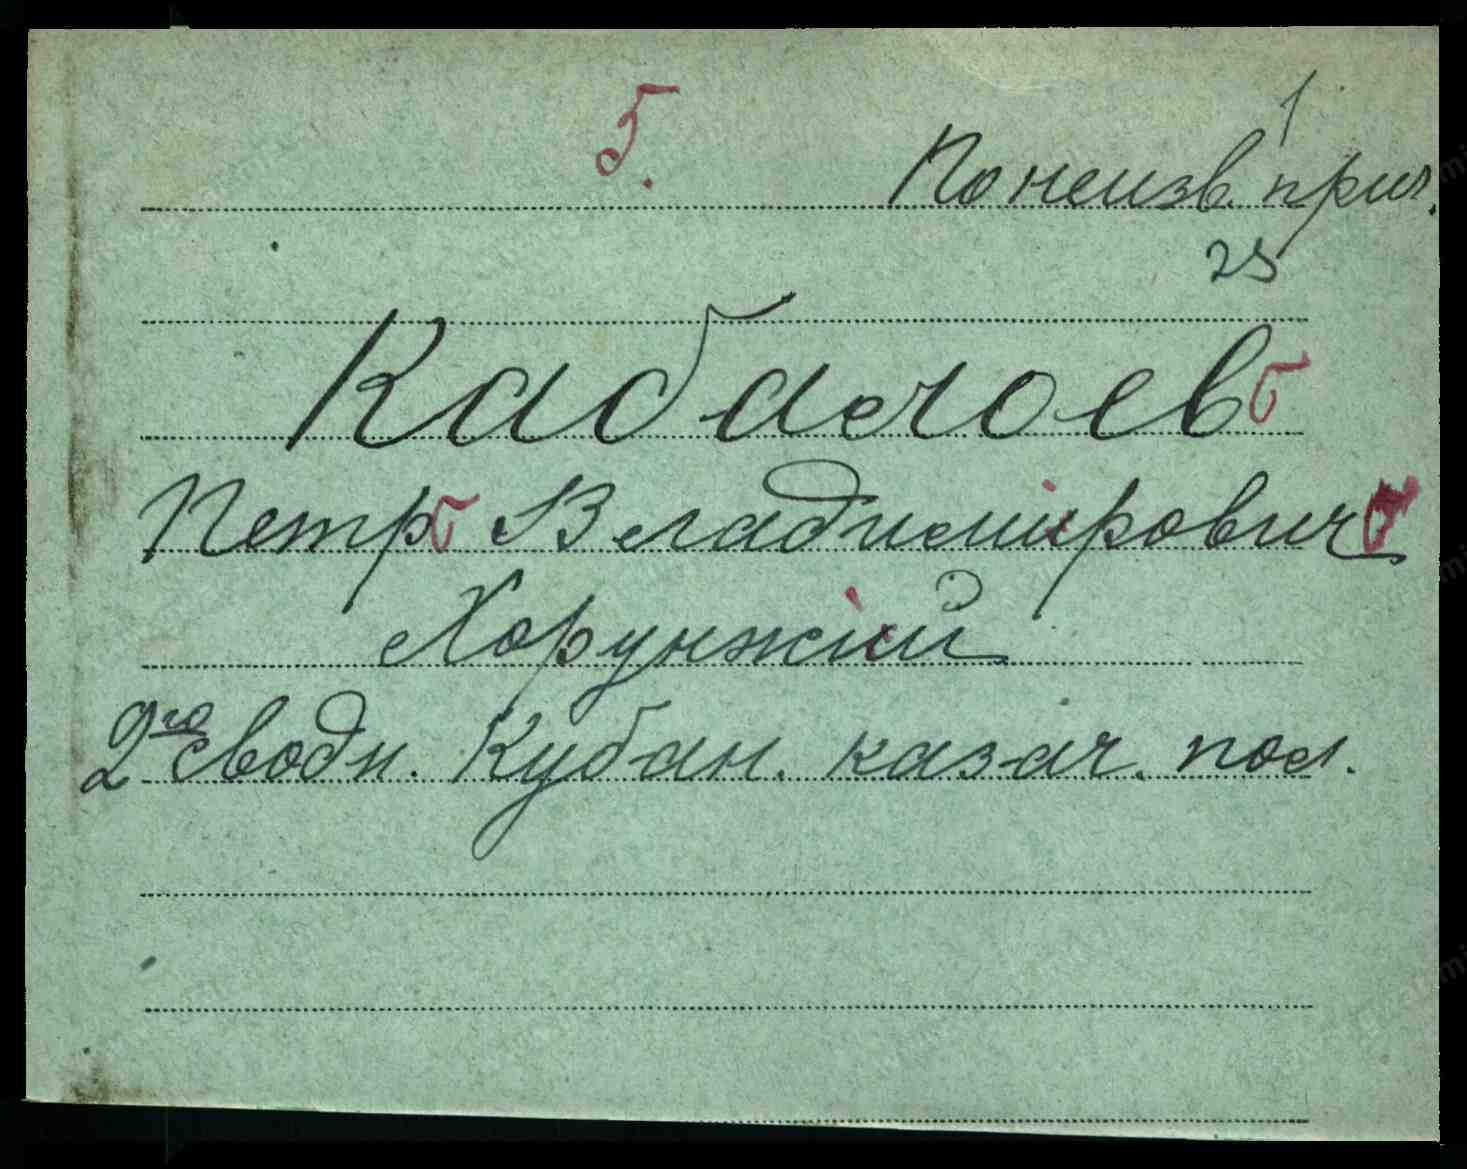 5.
1
По неизв. прич.
25
Кабалоевъ
Петръ Владимірович
Хорунжій
2го сводн. Кубан. казач. пол.